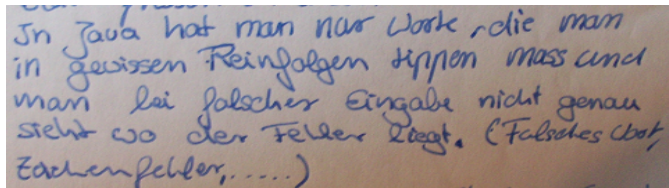 In Java hat man nur Worte, die man
in gewissen Reinfolgen tippen muss und
man bei falscher Eingabe nicht genau
sieht wo der Fehler liegt. (Falsches Wort,
Zeichenfehler,.....)